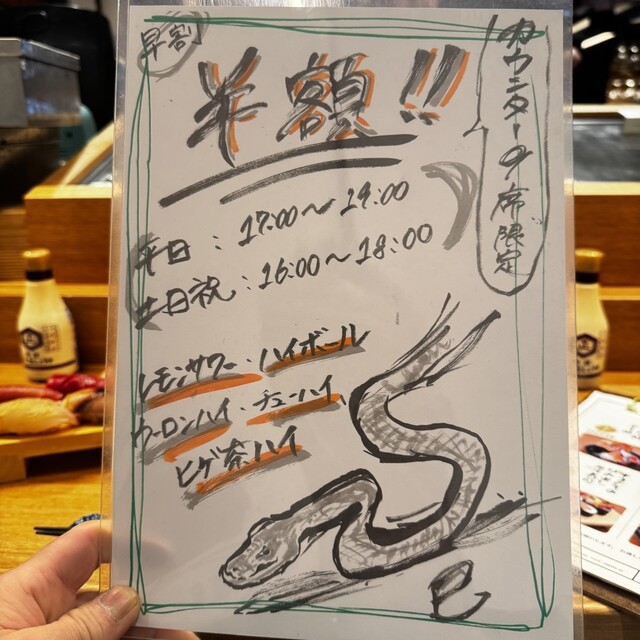 早割
半額!!
カウンターの席限定
平日：17:00〜19:00
土日祝：16:00〜18:00
レモンサワー・ハイボール
ウーロンハイ・チューハイ
ヒゲ茶ハイ
巳